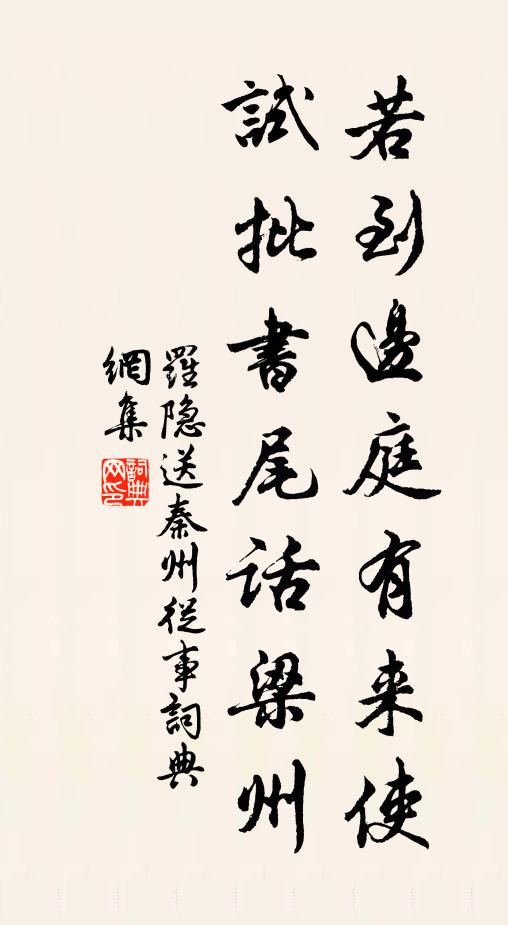 若到邊庭有来使
試批書尾話梁州
羅隐送秦州從事詞典
網集
詞典
网印